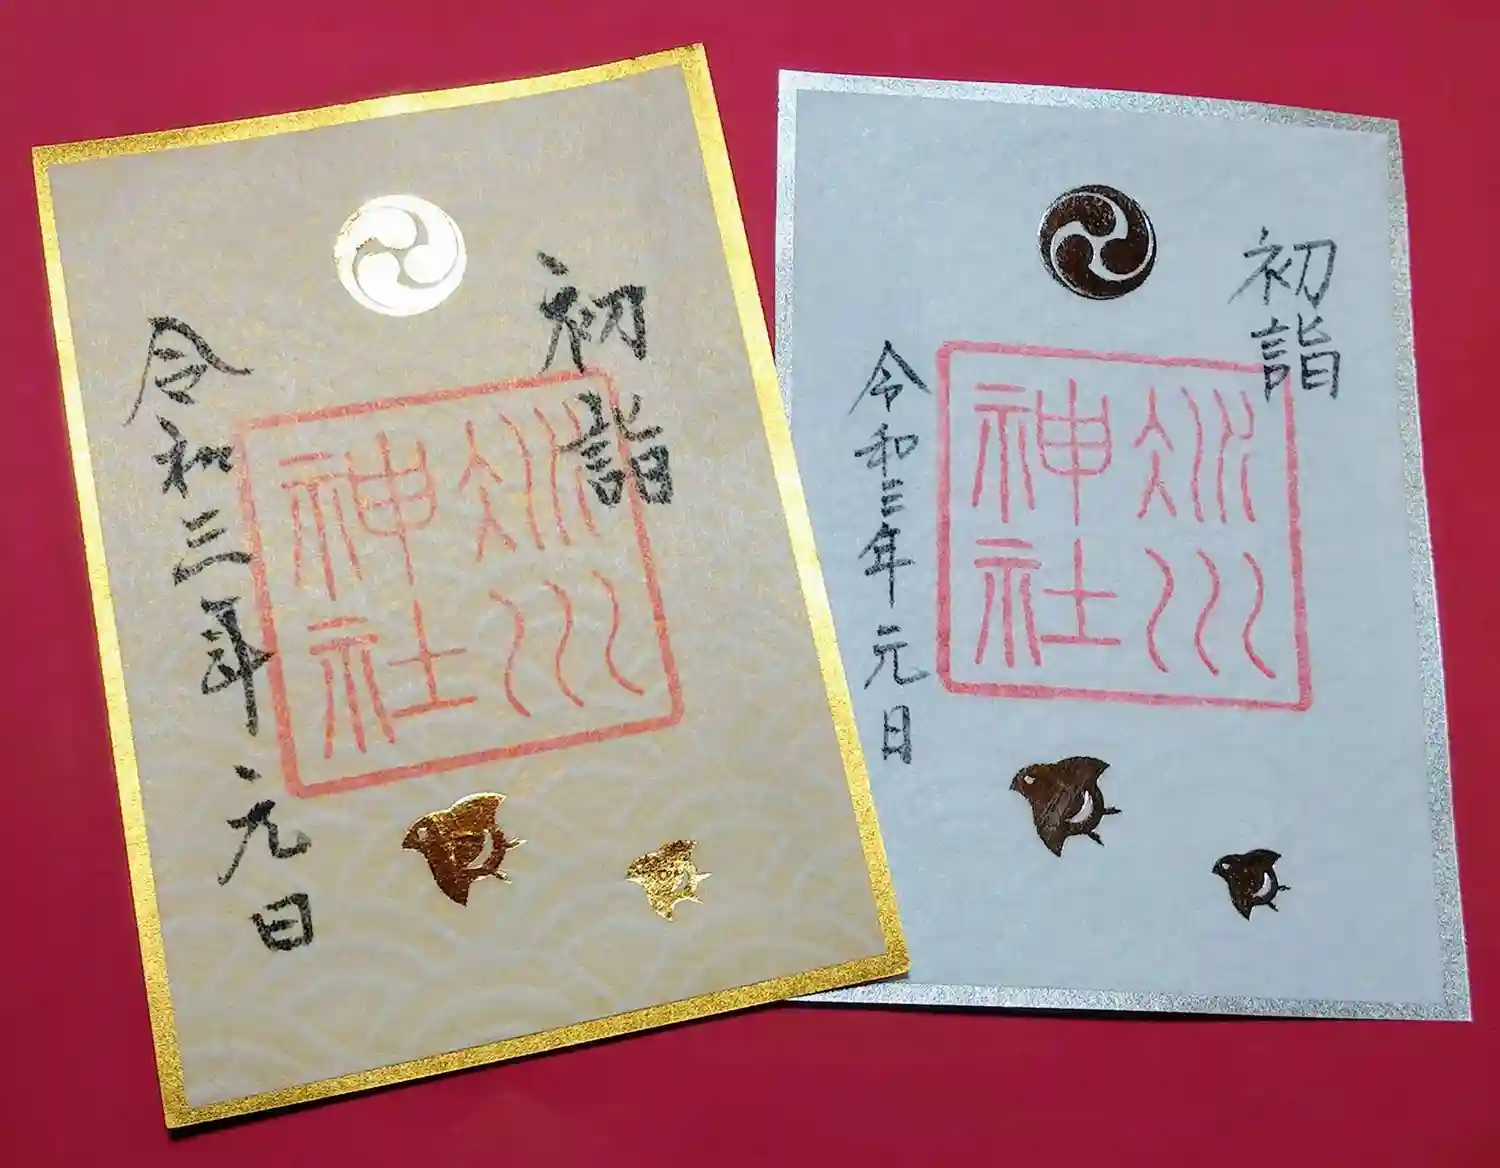 初詣
氷川
神社
令和三年元日
初詣
氷川
神社
令和三年元日